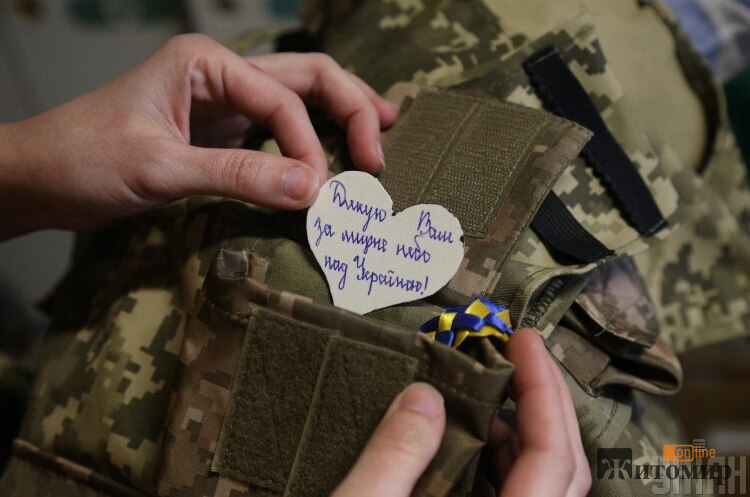 Дякую Вам
за мирне небо
над Україною!
on line
Житомир